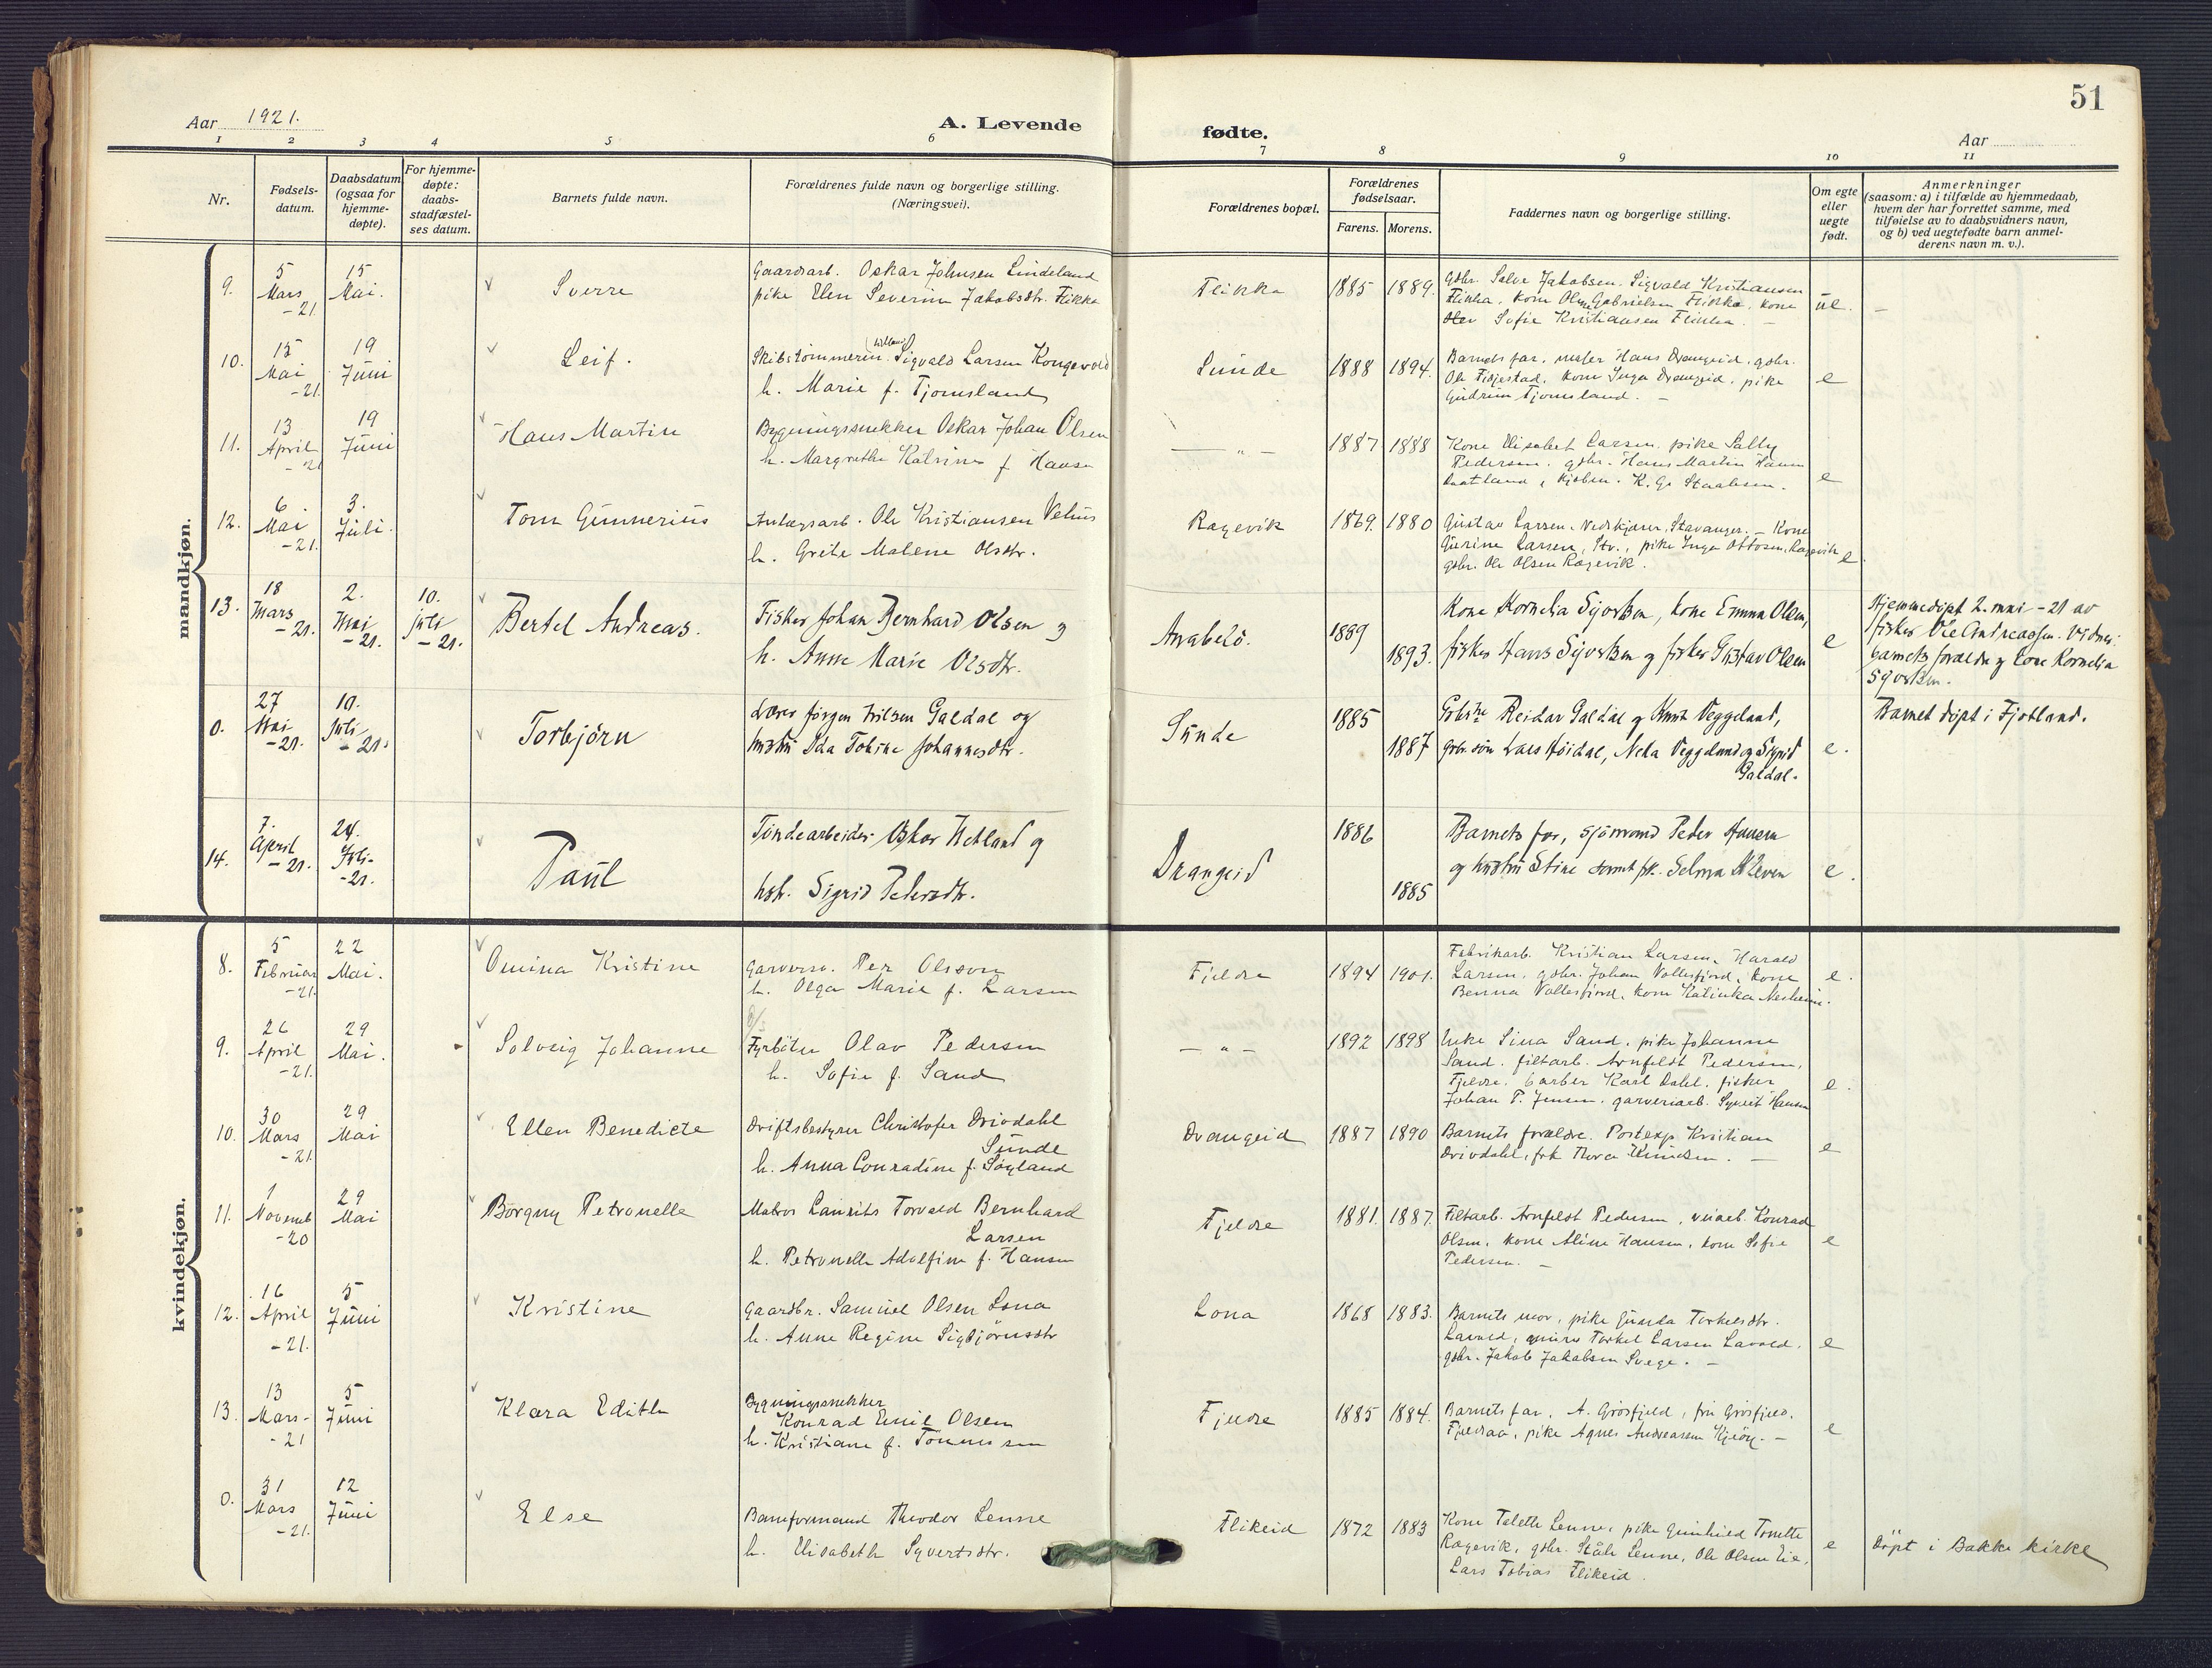 51
Aar 1921.
A. Levende
fødte.
Aar
1 2 3 4 5 6 7 8 9 10 11
Nr.
Fødsels-
datum.
Daabsdatum
(ogsaa for
hjemme-
døpte).
For hjemme-
døpte:
daabs-
stadfæstel-
ses datum.
Barnets fulde navn.
Forældrenes fulde navn og borgerlige stilling.
(Næringsvei).
Forældrenes bopæl.
Forældrenes
fødselsaar.
Farens. Morens.
Faddernes navn og borgerlige stilling.
Om egte
eller
uegte
født.
Anmerkninger
(saasom: a) i tilfælde av hjemmedaab,
hvem der har forrettet samme, med
tilføielse av to daabsvidners navn,
og b) ved uegtefødte barn anmel-
derens navn m. v.).
mandkjøn.
9.
5
Mars
-21
15
Mai.
Sverre
Gaardsarb. Oskar Johnsen Lindeland
pike Elen Severine Jakobsdtr. Flikka
Flikka
1885 1889.
Gdbr. Salve Jakobsen. Sigvald Kristiansen
Flikka, kone Oline Gabrielsen Flikka, kone
Sofie Kristiansen Flikka. -
ue.
-
10.
15
Mai
-21.
19
Juni
Leif.
Skibstømmerm. Sigvald Larsen Kongevold
h. Marie f. Tjomsland
Sunde
1888 1894.
Barnets far, Hans Drangeid, gdbr.
Ole Fidjestad, kone Inga Drangeid, pike
Gudrun Tjomsland. -
e
11.
13
April
-21
19
Juni
Hans Martin
Bygningssnekker Oskar Johan Olsen
h. Margrethe Katrine f. Hansen
- " -
1887 1888
Kone Elisabet Larsen, pike Sally
Pedersen, gdbr. Hans Martin Hansen
kjøbm. K. G. Staalesen.
e
12.
6
Mai
-21.
3.
Juli.
Tom Gunnerius
Anlægsarb. Ole Kristiansen
h. Grete Malene Olsdtr.
Ragevik
1869. 1880
Gustav Larsen, Stavanger. - Kone
Gurine Larsen, Stv., pike Inga Ottosen, Ragevik
gdbr. Ole Olsen Ragevik.
e.
13.
18
Mars
-21.
2.
Mai
-21.
10.
juli
-21.
Bertel Andreas.
Fisker Johan Bernhard Olsen og
h. Anne Marie Olsdtr.
Anabelø.
1889
1893.
Kone Kornelia Sijvertsen, kone Emma Olsen,
fisker Hans Sijvertsen og fisker Gustav Olsen
e
Hjemmedøpt 2. mai -21 av
fisker Ole Andreassen. Vidner:
barnets forældre og kone Kornelia
Syvertsen.
0.
27
Mai
-21.
10.
Juli
-21.
Torbjørn
Lærer Jørgen Nilsen Galdal og
hustru Ida Tobine Johannesdtr.
Sunde
1885
1887
Reidar Galdal og Knut Veggeland,
Gbr. søn Lars Høidal, Neka Veggeland og Sigrid
Galdal.
e.
Barnet døpt i Fjotland.
14.
7.
April
-21.
24.
Juli-
-21.
Paul
Tøndearbeider Oskar Hetland og
hst. Sigrid Pedersdtr.
Drangeid
1886
1885
Barnets far, sjømand Peder Hansen
og hustru Stine samt frk. Selma Kleven
e.
kvindekjøn.
8.
5
Februar
-21.
22
Mai.
Omina Kristine
Garversv. Per Olsson
h. Olga Marie f. Larsen
Fjeldre
1894 1901.
Fabrikarb. Kristian Larsen, Harald
Larsen, gdbr. Johan Vollesfjord, kone
Benna Vollesfjord, kone Katinka Nesheim.
e.
9.
26
April
-21.
29
Mai.
Solveig Johanne
Fyrbøter Olav Pedersen
h. Sofie f. Sand
- " -
1892 1898
Enke Sina Sand, pike Johanne
Sand, filtarb. Arnfeldt Pedersen,
Fjeldre, barber Karl Dahl, fisker
Johan T. Jensen, garveriarb. Syvert Hansen
e.
10.
30
Mars
-21.
29
Mai
Ellen Benedicte
Driftsbestyrer Christofer Drivdahl
Sunde
h. Anna Conradine f. Søyland
Drangeid
1887 1890
Barnets forældre. Postexp. Kristian
Drivdahl, frk Thora Knudsen. -
e
11.
1
Novemb
-20
29
Mai
Borgny Petronelle
Matros Laurits Torvald Bernhard
Larsen
h. Petronelle Adolfine f. Hansen
Fjeldre
1881. 1887.
Filtarb. Arnfeldt Pedersen, veiarb. Konrad
Olsen, kone Aline Hansen, kone Sofie
Pedersen. -
e
12.
16
April
-21.
5
Juni
Kristine
Gaardbr. Samuel Olsen Lona
h. Anne Regine Sigbjørnsdtr
Lona
1868 1883.
Barnets mor, pike Gunda Torkelsdtr.
Lavold, Torkel Larsen Lavold,
gdbr. Jakob Jakobsen Svege. -
e
13.
13
Mars-
-21
5
Juni
Klara Edith
Bygningssnekker
Konrad Emil Olsen
h. Kristiane f. Tønnessen
Fjeldre
1885 1884.
Barnets far, A. Grøsfjeld, fru Grøsfjeld,
Fjeldsaa, pike Agnes Andreassen Kjeøy. -
e
0.
31
Mars
-21.
12
Juni
Else
Baneformand Theodor Lenne
h. Elisabeth Syvertsdtr.
Flikeid
1872 1883
Kone Talette Lenne, pike Gunhild Tonette
Ragevik, gdbr. Ståle Lenne, Ole Olsen Eie,
Lars Tobias Flikeid.
e
Døpt i Bakke kirke